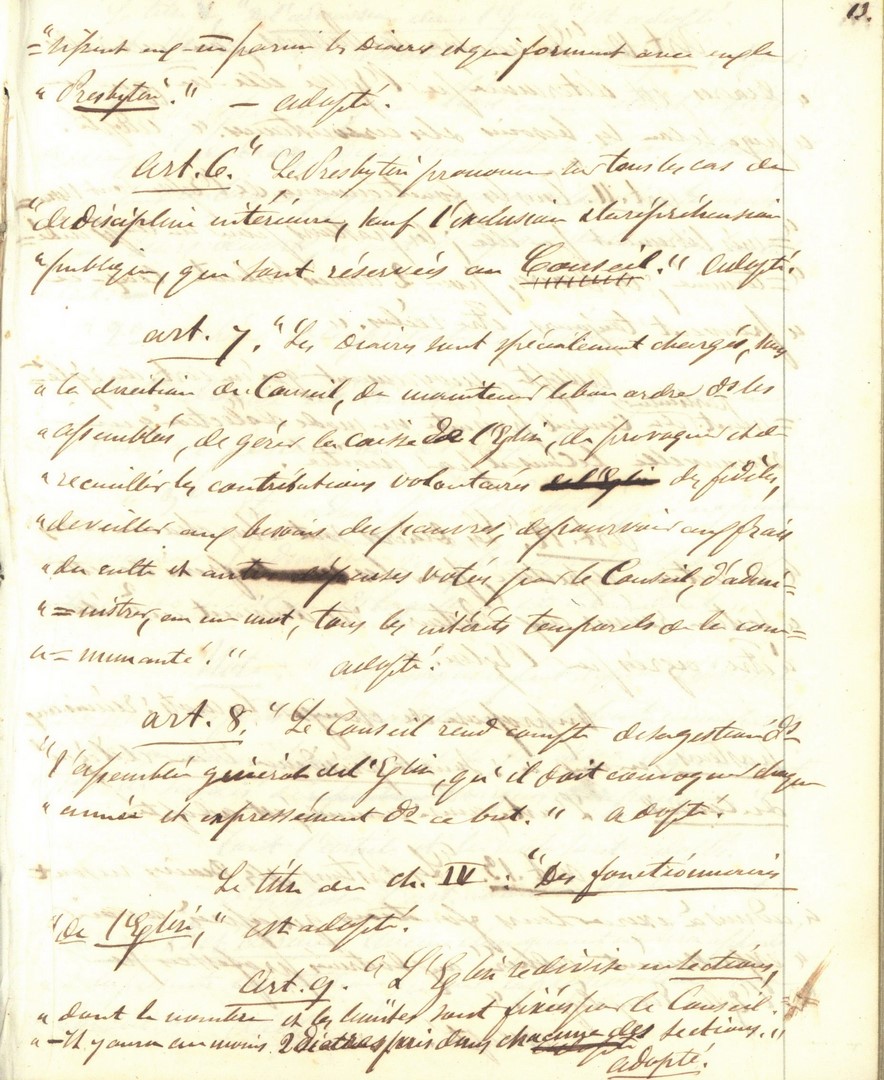 13.
parmi les Diacres et qui forment avec
" Presbytère." — adopté.
art. 6. " Le Presbytère prononce sur tous les cas de
" de discipline intérieure, sauf l'exclusion & la répréhension
" publique, qui sont réservées au Conseil." adopté.
art. 7. " Les Diacres sont spécialement chargés, sous
" la direction du Conseil, de maintenir le bon ordre ds les
" assemblées, de gérer la caisse de l'Eglise, de provoquer et de
" recueillir les contributions volontaires des fidèles,
" de veiller aux besoins des pauvres, de pourvoir aux frais
" du culte et autres dépenses votées par le Conseil, d'admi=
" =nistrer, en un mot, tous les intérêts temporels de la com=
" =munauté." adopté.
art. 8. " Le Conseil rend compte de sa gestion ds
" l'assemblée générale de l'Eglise, qu'il doit convoquer chaque
" année et expressément ds ce but." adopté.
Le titre du ch. IV. " Des fonctionnaires
" de l'Eglise," est adopté.
art. 9. " L'Eglise se divise en sections,
" dont le nombre et les limites sont fixés par le Conseil.
" — Il y aura au moins 2 Diacres pris dans chacune des sections."
adopté.